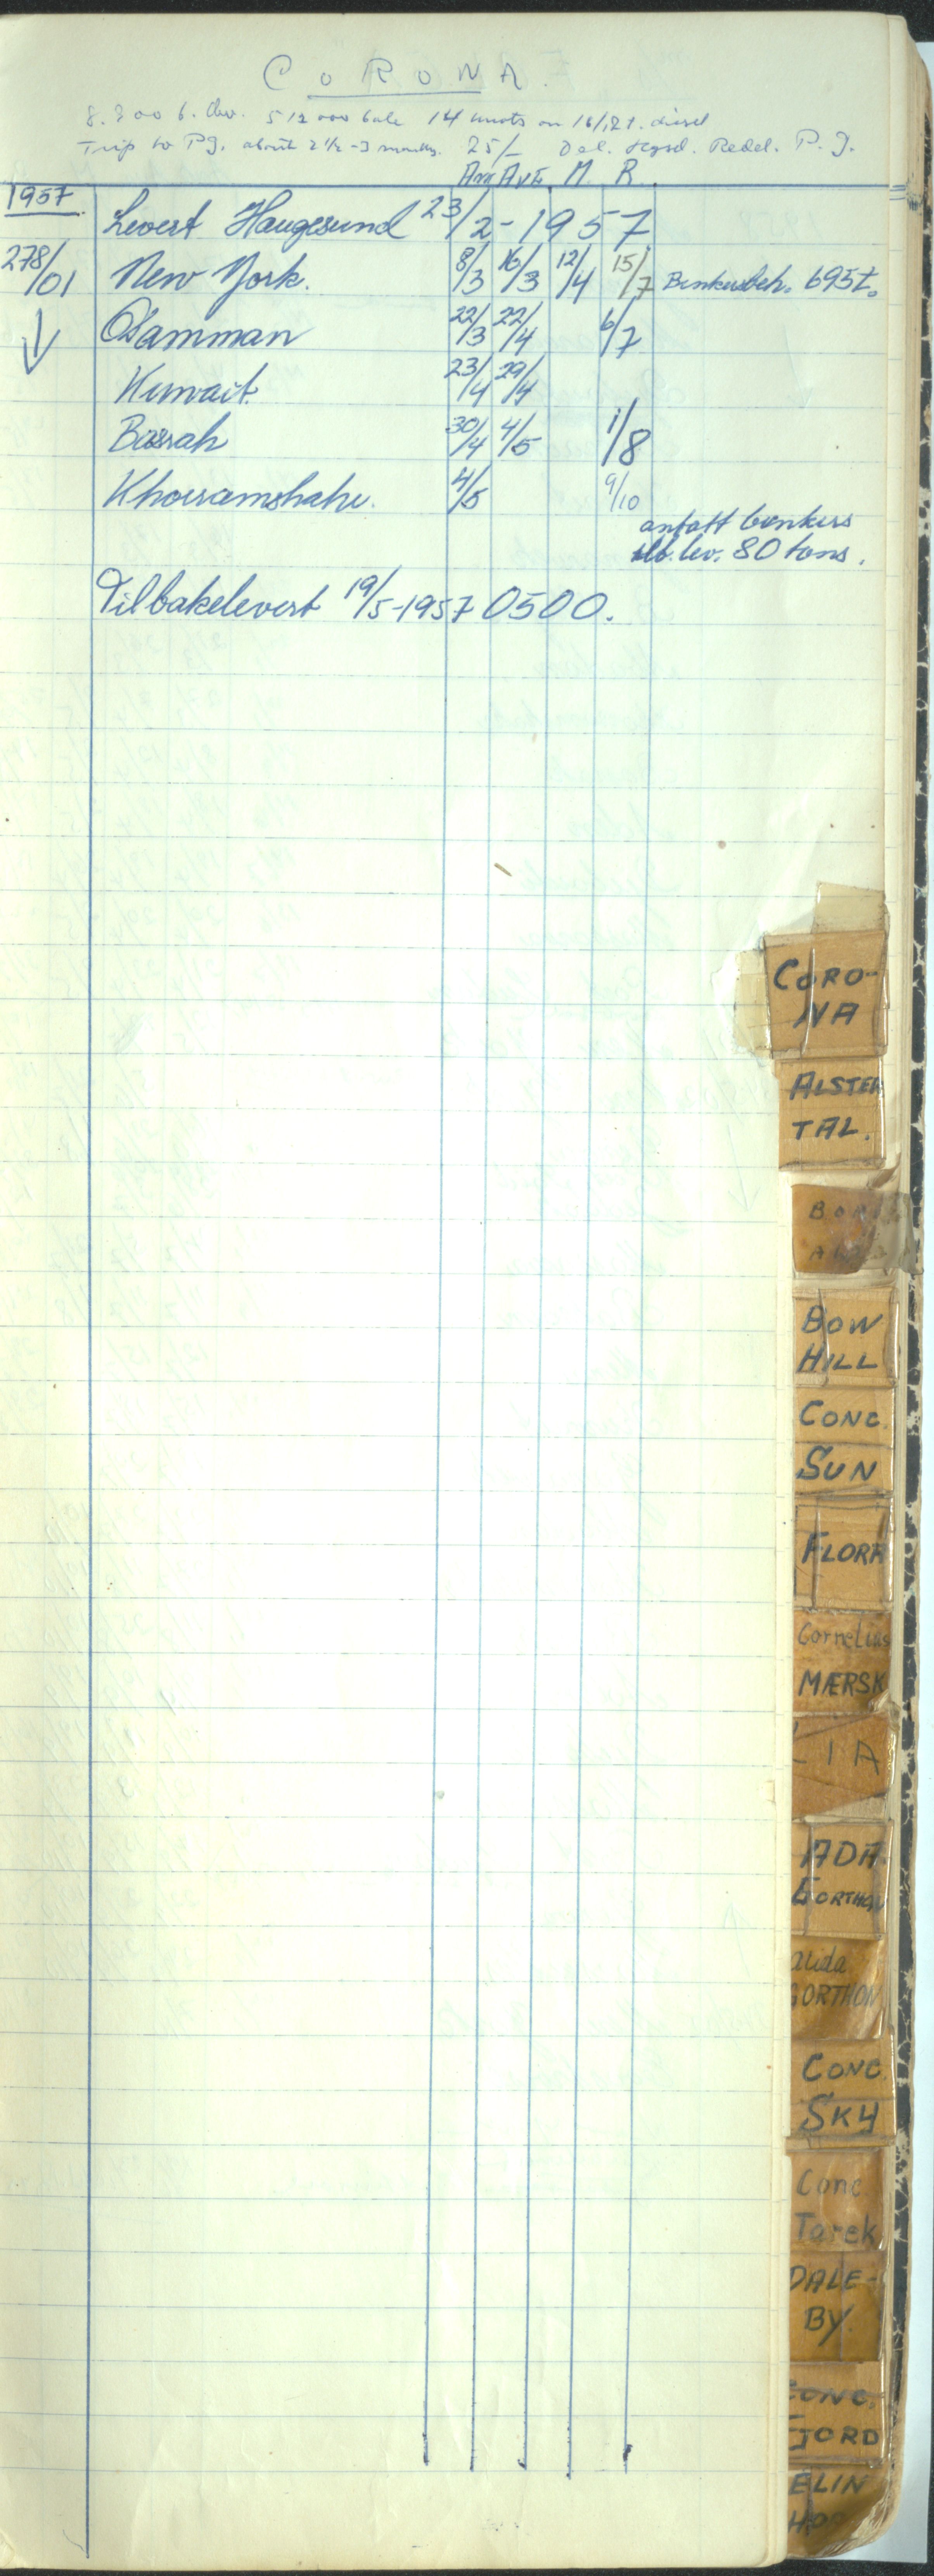 CORONA.
8.300 t. dw. 512000 bale 14 knots on 16/12 t. diesel
Trip to P.G. about 2½-3 months. 25/- Del. Hgsd. Redel. P.G.
Ank AVG. M. R.
1957. Levert Haugesund 23/2-1957
278/01 New York. 8/3 16/3 12/4 15/7 Bunkersbeh. 695t.
Damman 22/3 22/4 6/7
Kuwait. 23/4 29/4
Basrah 30/4 4/5 1/8
Khorramshahr. 4/5 9/10
antatt bunkers
lev. 80 tons.
Tilbakelevert 19/5-1957 0500.
CORO-
NA
ALSTER
TAL.
BOW
HILL
CONC.
SUN
FLORA
Cornelius
MÆRSK
LIA
ADA
GORTHON
alida
GORTHON
CONC.
SKY
Conc
Tarek
DALE-
BY.
CONC.
FJORD
ELIN